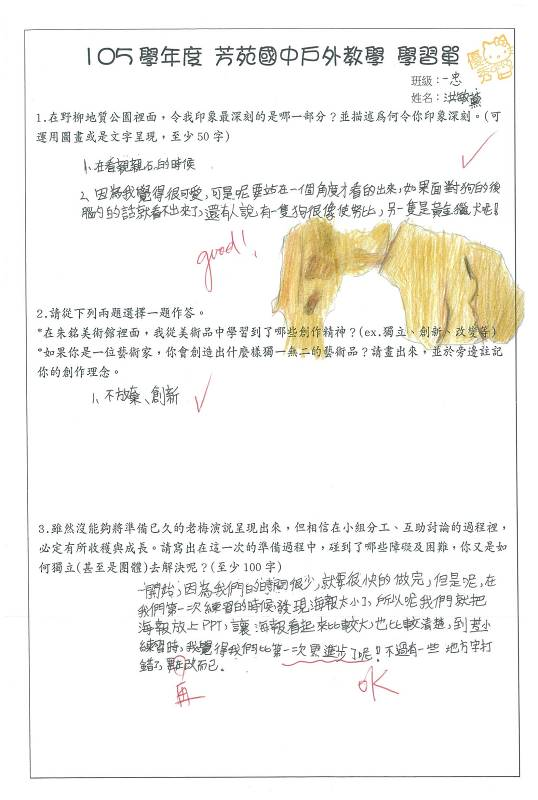 105學年度 芳苑國中戶外教學 學習單
優秀
班級：一忠
姓名：洪
1.在野柳地質公園裡面，令我印象最深刻的是哪一部分？並描述為何令你印象深刻。(可
運用圖畫或是文字呈現，至少50字)
1、在看親親石的時候
2、因為我覺得很可愛，可是呢要站在一個角度才看的出來，如果面對狗的後
腦勺的話就看不出來了，還有人說，有一隻狗很像史努比，另一隻是黃金獵犬呢！
good!
2.請從下列兩題選擇一題作答。
*在朱銘美術館裡面，我從美術品中學習到了哪些創作精神？(ex.獨立、創新、改變等)
*如果你是一位藝術家，你會創造出什麼樣獨一無二的藝術品？請畫出來，並於旁邊註記
你的創作理念。
1、不放棄、創新
3.雖然沒能夠將準備已久的老梅演說呈現出來，但相信在小組分工、互助討論的過程裡，
必定有所收獲與成長。請寫出在這一次的準備過程中，碰到了哪些障礙及困難，你又是如
何獨立(甚至是團體)去解決呢？(至少100字)
一開始，因為我們的時間很少，就要很快的做完，但是呢，在
我們第一次練習的時候，發現海報太小了，所以呢我們就把
海報放上PPT，讓海報看起來比較大，也比較清楚，到
練習時，我覺得我們比第一次更進步了呢！不過有一些 地方字打
錯了，改而已。
再
OK